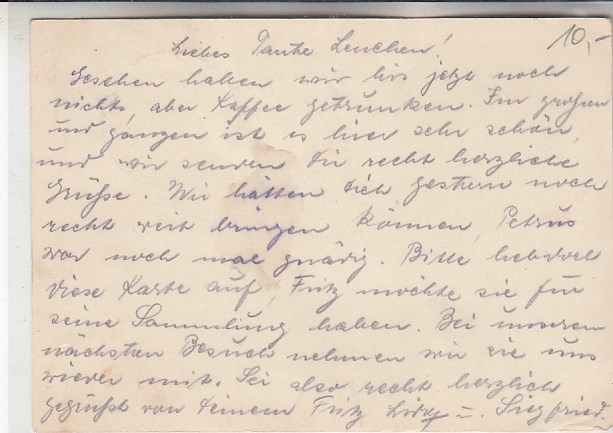 10,-
Liebes Tante Lenchen!
Gesehen haben wir bis jetzt noch
nichts, aber Kaffee getrunken. Im großen
und ganzen ist es hier sehr schön,
und wir senden Dir recht herzliche
Grüße. Wir hätten Dich gestern noch
recht weit bringen können, Petrus
war noch mal gnädig. Bitte hebe
diese Karte auf, Fritz möchte sie für
seine Sammlung haben. Bei unseren
nächsten Besuch nehmen wir sie uns
wieder mit. Sei also recht herzlich
gegrüßt von Deinem Fritz u. Siegfried.